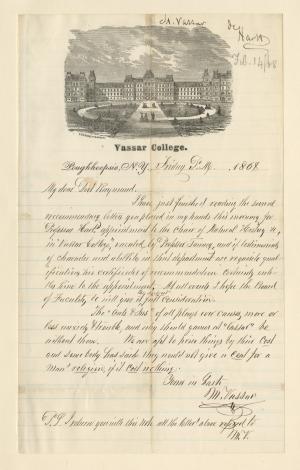 M. Vassar
Feb. 14/68
Vassar College.
Poughkeepsie, N.Y., Friday P.M. 1868
My dear Doct Raymond
I have just finished reading the several
recommendatory letters you placed in my hands this morning for
Professor appointment to the chair of Natural History &c,
in Vassar College, vacated by Professor and if testimonials
of character and ability in that department are requisite quali-
fications his certificates of recommendation Certainly
him to the appointment. At all events I hope the Board
of Faculty &c will give it just Consideration.
The of all plays more or
less and why should games at "Vassar" be
without them. We are apt to prize things by their Cost
and somebody has said they would not give a Cent for a
Mans religion, if it Cost nothing.
Yours in haste
M. Vassar
P.S. I return you with this note all the letters above referred to
M.V.